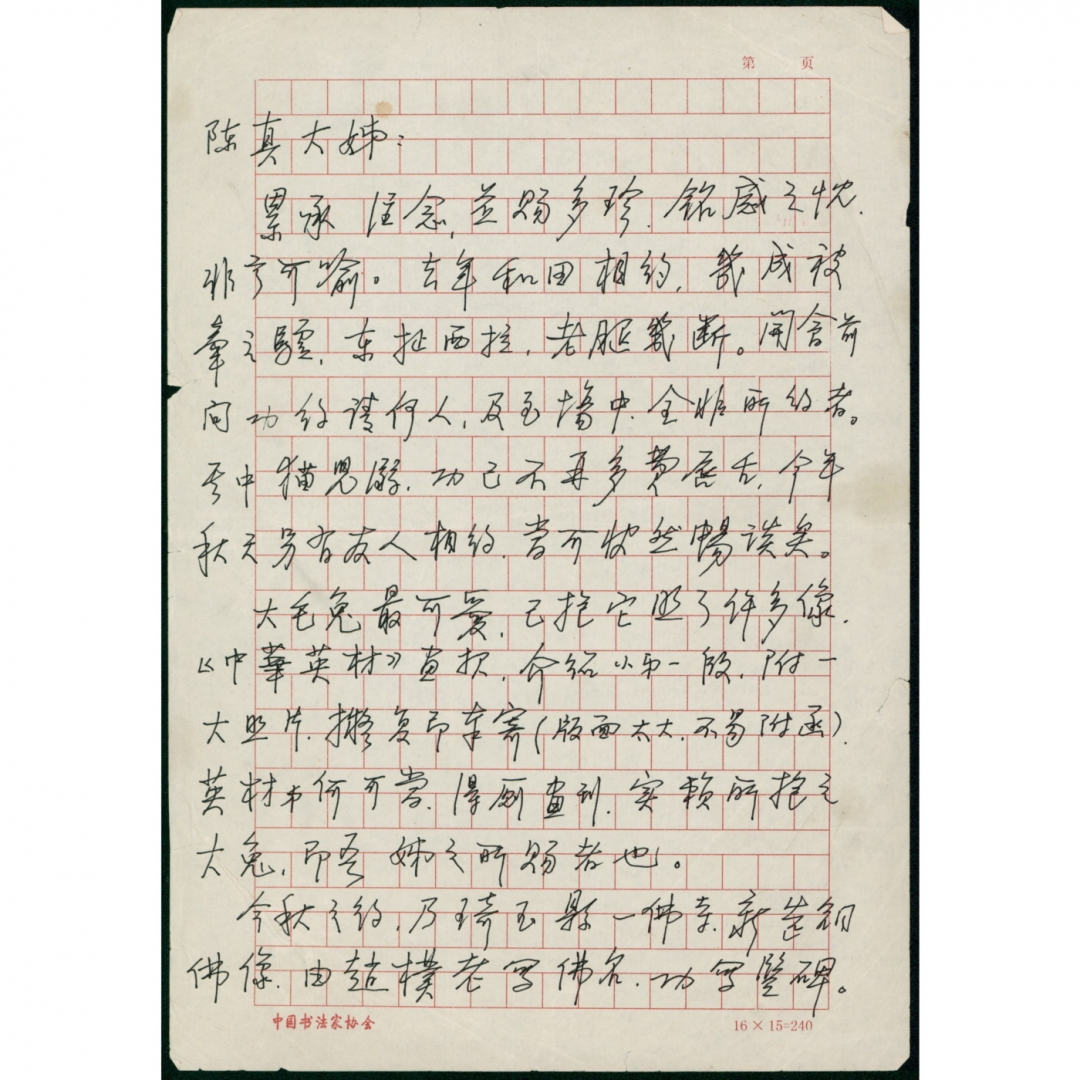 第 页
陈真大姊:
累承 注念,並赐多珍.铭感之忱.
非言可喻。去年和田相约,几成被
牵之驢,东扯西拉,老腿几断。開会前
问功约请何人,及至場中.全非所约者。
其中猫鬼,功已不再多费唇舌.今年
秋天另有友人相约.当可快然暢谈矣。
大毛兔最可爱,已抱它照了许多像.
《中華英材》画报,介绍小弟一段,附一
大照片.擬复印奉寄(版面太大.不易附函).
英材弟何可当,得厕画刊.实赖所抱之
大兔,即吾 姊之所赐者也。
今秋之约,乃琦玉县一佛寺.新造铜
佛像.由趙樸老写佛名.功写豎碑。
中国书法家协会
16×15=240